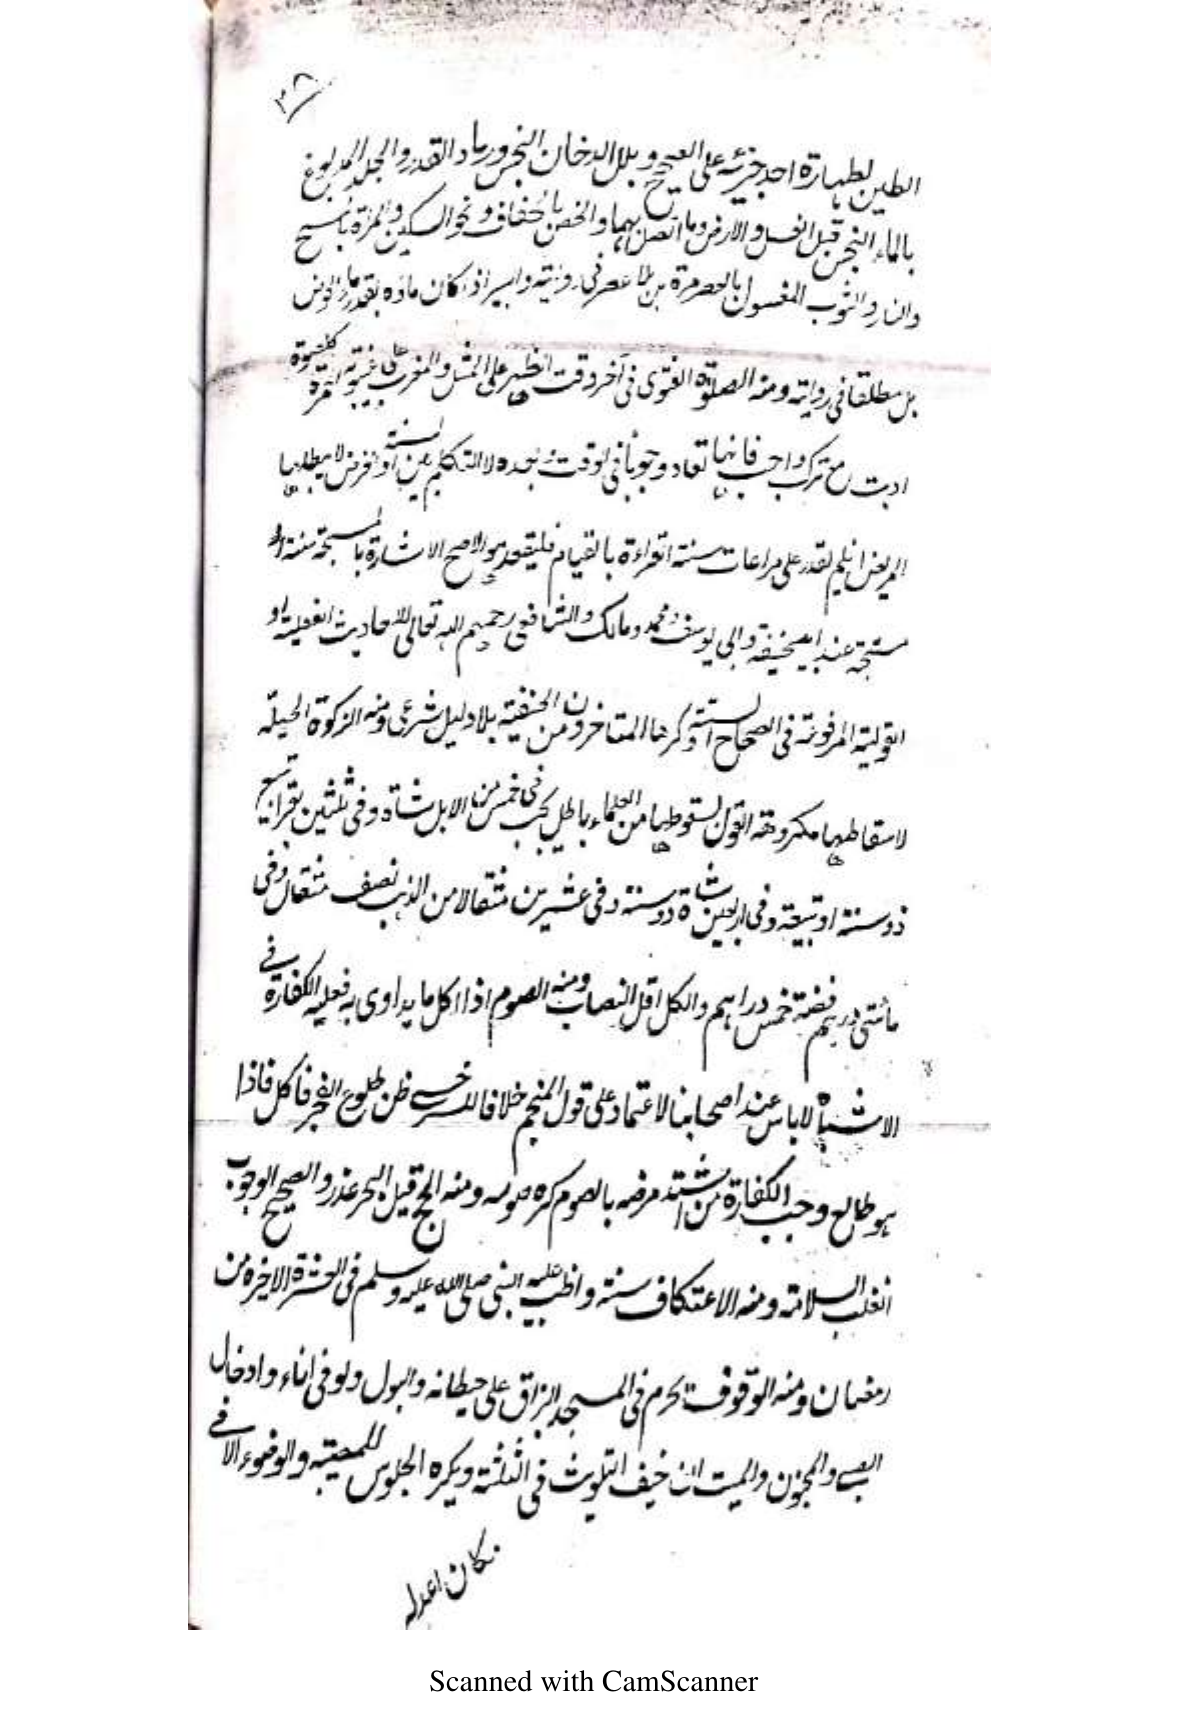 ٣٨
الطين لطهارة احد جزئه على الصحيح وبلل الدخان النجس ورماد القذر والجلد المدبوغ
بالماء النجس قبل الغسل والارض وما اتصل بها والخف بالجفاف ونحو السكين والمرآة بالمسح
والنار والثوب المغسول بالعصر مرة في رواية والبير اذا كان ماؤه بقدر
بل مطلقا في رواية ومنه الصلوة الفتوى في آخر وقت الظهر على المثل والمغرب على غيبوبة الحمرة كلصلوة
اديت مع ترك واجب فانها تعاد وجوبا في الوقت بعده لا التكلم بين السنة او الفرض لا يبطلها
المريض ان لم يقدر على مراعات سنة القراءة بالقيام فليقعد والاصح الاشارة بالمسبحة سنة او
مستحبة عند ابيحنيفة وابي يوسف ومحمد ومالك والشافعي رحمهم الله تعالى للاحاديث الفعلية او
القولية المرفوعة في الصحاح الستة وكرهها المتاخرون من الحنفية بلا دليل شرعي ومنه الزكوة الحيلة
لاسقاطها مكروهة القول لسقوطها من العلماء باطل يجب في خمس من الابل شاة وفي ثلثين بقرا تبيع
ذو سنة او تبيعة وفي اربعين شاة ذو سنة وفي عشرين مثقالا من الذهب نصف مثقال وفي
مائتي درهم فضة خمس دراهم والكل اقل النصاب ومنه الصوم اذا اكل ما يداوى به فعليه الكفارة في
الاشباه لاباس عند اصحابنا الاعتماد على قول المنجم خلافا للسرخسي ظن طلوع الفجر فاكل فاذا
هو طالع وجب الكفارة من اشتد مرضه بالصوم كره صومه ومنه الحج قيل البحر عذر والصحيح الوجوب
اغلب السلامة ومنه الاعتكاف سنة واظب عليه النبي صلى الله عليه وسلم في العشرة الاخيرة من
رمضان ومنه الوقوف يحرم في المسجد البزاق على حيطانه والبول ولو في اناء وادخال
الصبي والمجنون والميت ان خيف التلويث في الثلثة ويكره الجلوس للمصيبة والوضوء الا في
مكان اعد له
Scanned with CamScanner